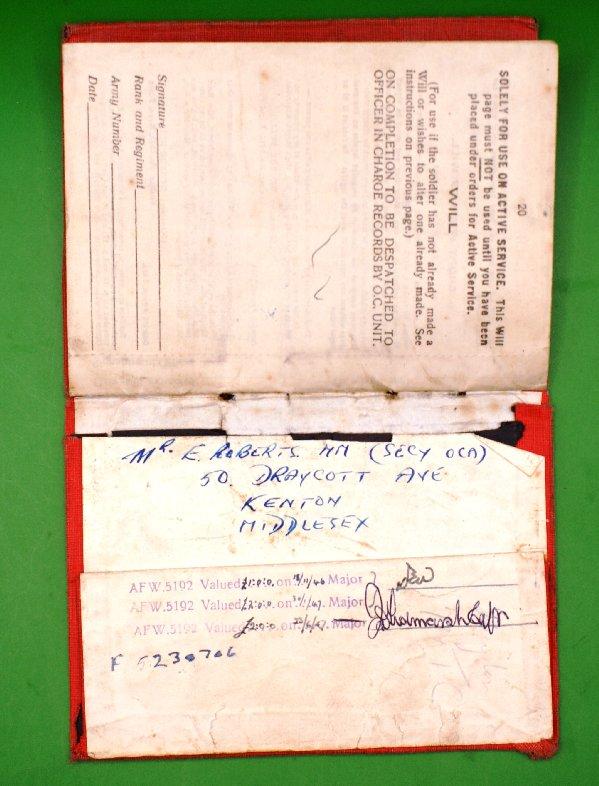 20
SOLELY FOR USE ON ACTIVE SERVICE. This Will
page must NOT be used until you have been
placed under orders for Active Service.
WILL
(For use if the soldier has not already made a
Will or wishes to alter one already made. See
instructions on previous page.)
ON COMPLETION TO BE DESPATCHED TO
OFFICER IN CHARGE RECORDS BY O.C. UNIT.
Signature
Rank and Regiment
Army Number
Date
Mr. E. ROBERTS MM (SECY OCA)
50. DRAYCOTT AVE
KENTON
MIDDLESEX
AFW.5192 Valued £1:0:0. on /11/46 Major
AFW.5192 Valued £2:0:0. on /1/47. Major
AFW.5192 Valued £2:0:0. on /6/47. Major
F 5230706